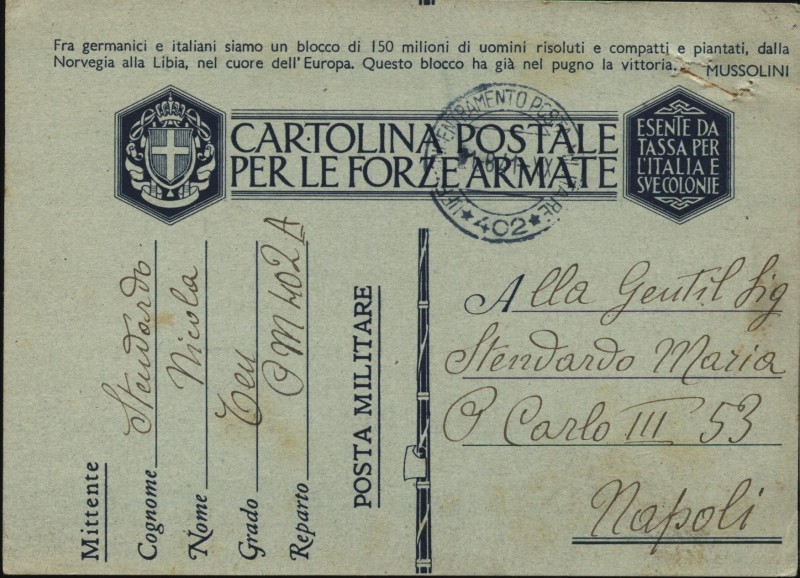 Fra germanici e italiani siamo un blocco di 150 milioni di uomini risoluti e compatti e piantati, dalla
Norvegia alla Libia, nel cuore dell'Europa. Questo blocco ha già nel pugno la vittoria.
MUSSOLINI
CARTOLINA POSTALE
PER LE FORZE ARMATE
ESENTE DA
TASSA PER
L'ITALIA E
SVE COLONIE
402
Mittente
Cognome Stendardo
Nome Nicola
Grado Ten
Reparto PM 402 A
POSTA MILITARE
Alla Gentil Sig
Stendardo Maria
P Carlo III 53
Napoli